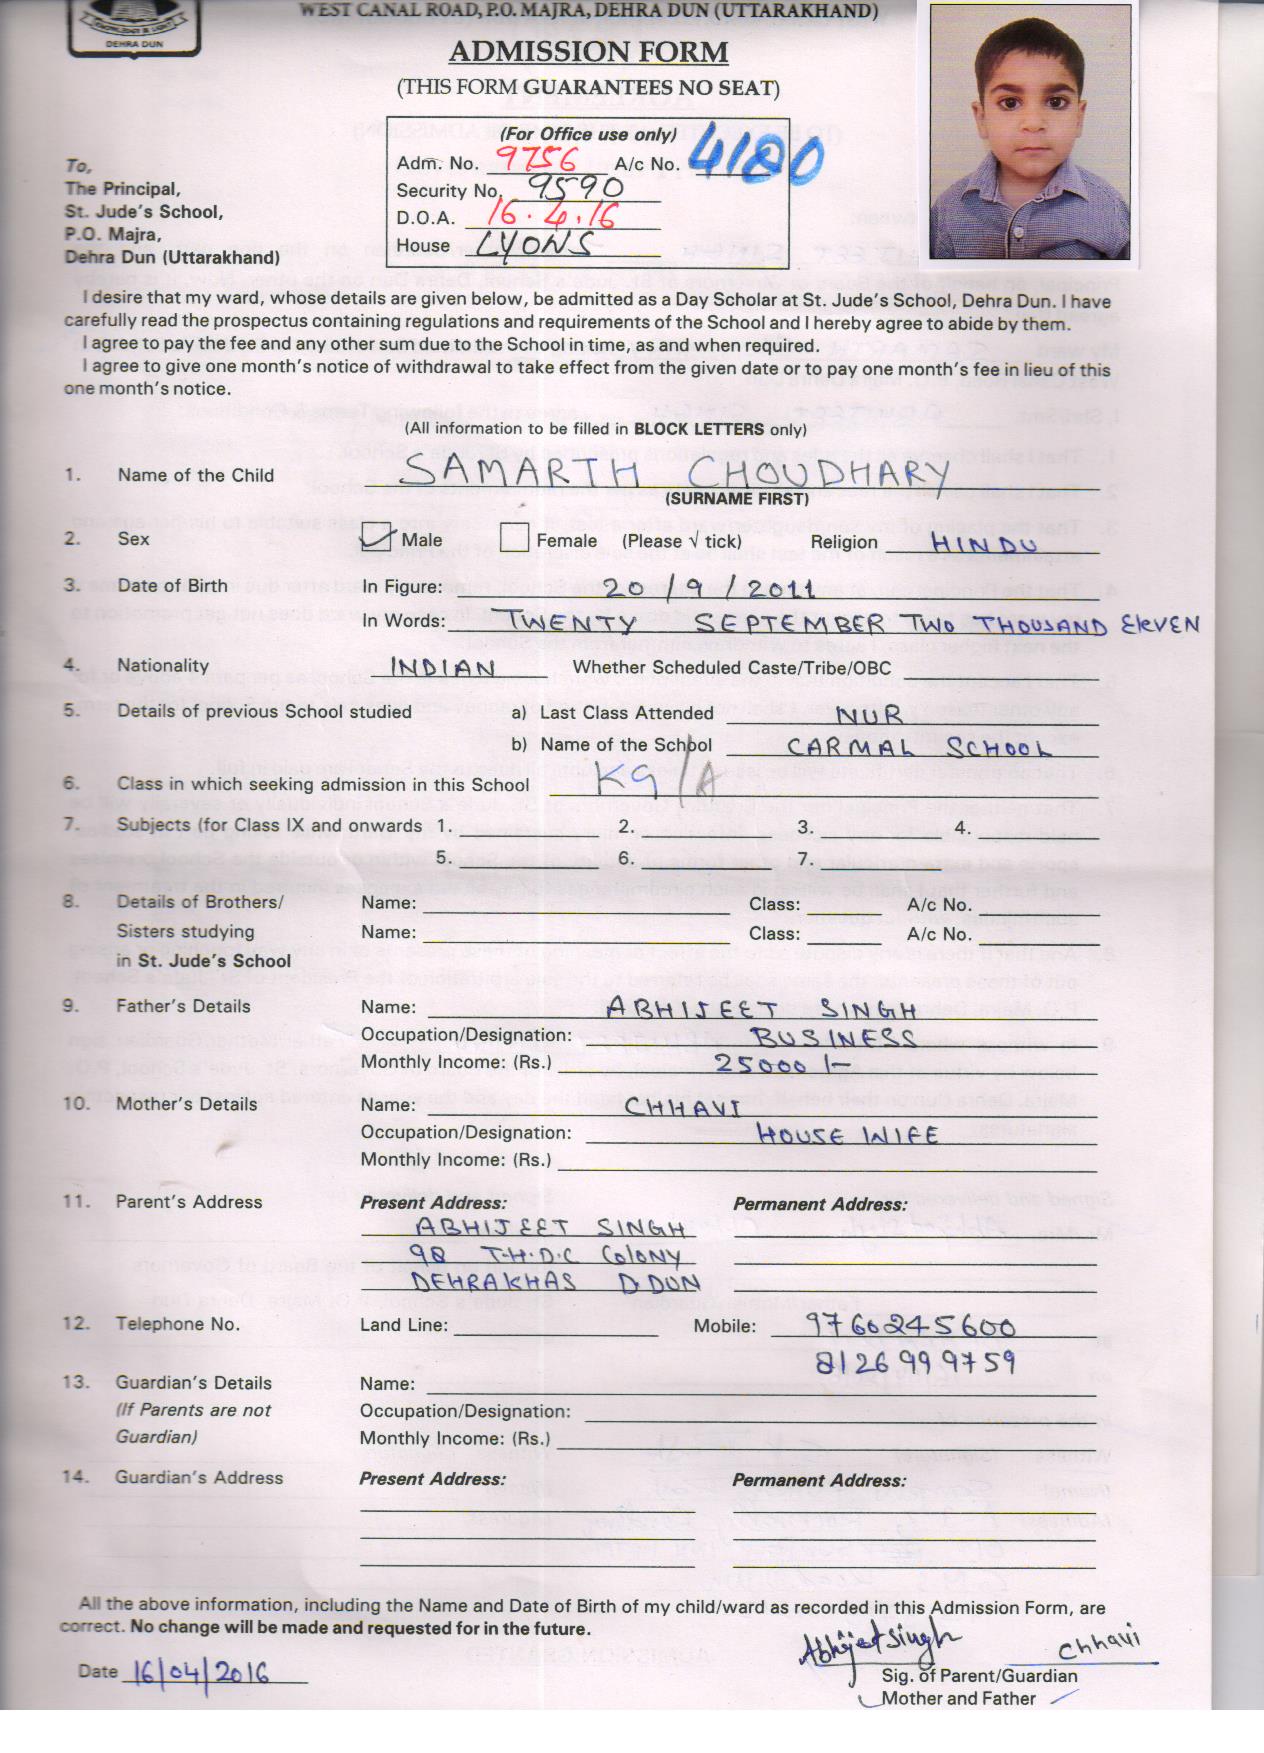 WEST CANAL ROAD, P.O. MAJRA, DEHRA DUN (UTTARAKHAND)
DEHRA DUN
ADMISSION FORM
(THIS FORM GUARANTEES NO SEAT)
(For Office use only)
Adm. No. 9756 A/c No. 4180
Security No. 9590
D.O.A. 16.4.16
House LYONS
To,
The Principal,
St. Jude's School,
P.O. Majra,
Dehra Dun (Uttarakhand)
I desire that my ward, whose details are given below, be admitted as a Day Scholar at St. Jude's School, Dehra Dun. I have
carefully read the prospectus containing regulations and requirements of the School and I hereby agree to abide by them.
I agree to pay the fee and any other sum due to the School in time, as and when required.
I agree to give one month's notice of withdrawal to take effect from the given date or to pay one month's fee in lieu of this
one month's notice.
(All information to be filled in BLOCK LETTERS only)
1. Name of the Child SAMARTH CHOUDHARY
(SURNAME FIRST)
2. Sex Male Female (Please √ tick) Religion HINDU
3. Date of Birth In Figure: 20/9/2011
In Words: TWENTY SEPTEMBER TWO THOUSAND ElEVEN
4. Nationality INDIAN Whether Scheduled Caste/Tribe/OBC
5. Details of previous School studied a) Last Class Attended NUR
b) Name of the School CARMAL SCHOOL
6. Class in which seeking admission in this School KG/A
7. Subjects (for Class IX and onwards 1. 2. 3. 4.
5. 6. 7.
8. Details of Brothers/ Name: Class: A/c No.
Sisters studying Name: Class: A/c No.
in St. Jude's School
9. Father's Details Name: ABHIJEET SINGH
Occupation/Designation: BUSINESS
Monthly Income: (Rs.) 25000/-
10. Mother's Details Name: CHHAVI
Occupation/Designation: HOUSE WIFE
Monthly Income: (Rs.)
11. Parent's Address Present Address: Permanent Address:
ABHIJEET SINGH
98 T.H.D.C ColONY
DEHRAKHAS D.DUN
12. Telephone No. Land Line: Mobile: 9760245600
8126999759
13. Guardian's Details Name:
(If Parents are not Occupation/Designation:
Guardian) Monthly Income: (Rs.)
14. Guardian's Address Present Address: Permanent Address:
All the above information, including the Name and Date of Birth of my child/ward as recorded in this Admission Form, are
correct. No change will be made and requested for in the future.
Abhijeet singh Chhavi
Date 16/04/2016 Sig. of Parent/Guardian
Mother and Father